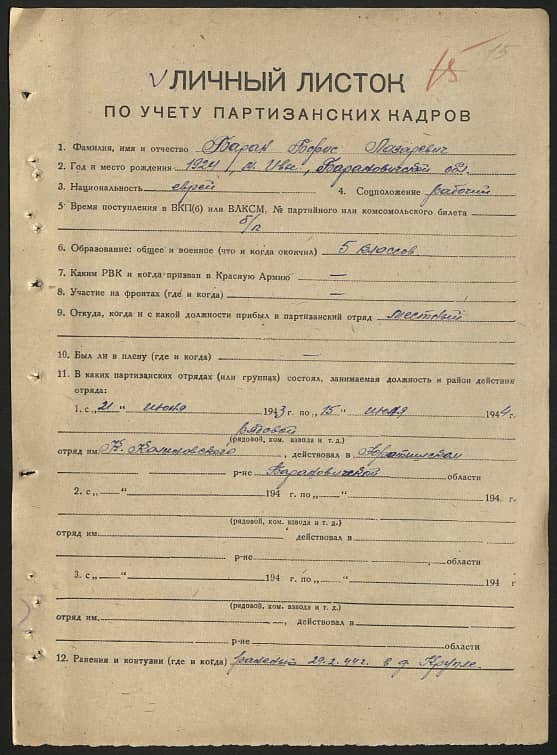 15 15
ЛИЧНЫЙ ЛИСТОК
ПО УЧЕТУ ПАРТИЗАНСКИХ КАДРОВ
1. Фамилия, имя и отчество Баран Борис Лазаревич
2. Год и место рождения 1924, м. Ивье, Барановичской обл.
3. Национальность еврей 4. Соцположение рабочий
5 Время поступления в ВКП(б) или ВЛКСМ, № партийного или комсомольского билета
б/п
6. Образование: общее и военное (что и когда окончил) 5 классов
7. Каким РВК и когда призван в Красную Армию —
8. Участие на фронтах (где и когда) —
9. Откуда, когда и с какой должности прибыл в партизанский отряд местный
10. Был ли в плену (где и когда) —
11. В каких партизанских отрядах (или группах) состоял, занимаемая должность и район действия
отряда:
1. с „21“ июня 1943 г. по „15“ июля 1944 г.
рядовой
(рядовой, ком. взвода и т. д.)
отряд им К. Калиновского, действовал в
р-не Барановичской области
2. с „—“ 194 г. по „—“ 194 г.
(рядовой, ком. взвода и т. д.)
отряд им. действовал в
р-не , области
3. с „—“ 194 г. по „—“ 194 г
(рядовой, ком. взвода и т. д.)
отряд им. , действовал в
р-не области
12. Ранения и контузии (где и когда) раненый 29.2.44 г. в д.